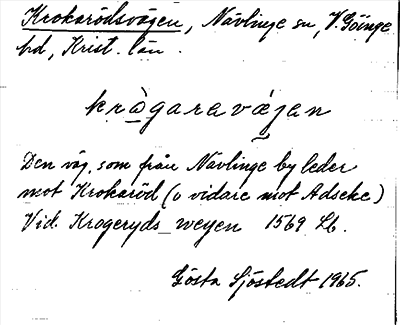 Krokarödsvägen, Nävlinge sn, V. Göinge
hd, Krist. län.
kràgaravæjan
Den väg, som från Nävlinge by leder
mot Krokaröd (o vidare mot Adseke)
Vid. Krogeryds_weyen 1569 Lb.
Gösta Sjöstedt 1965.